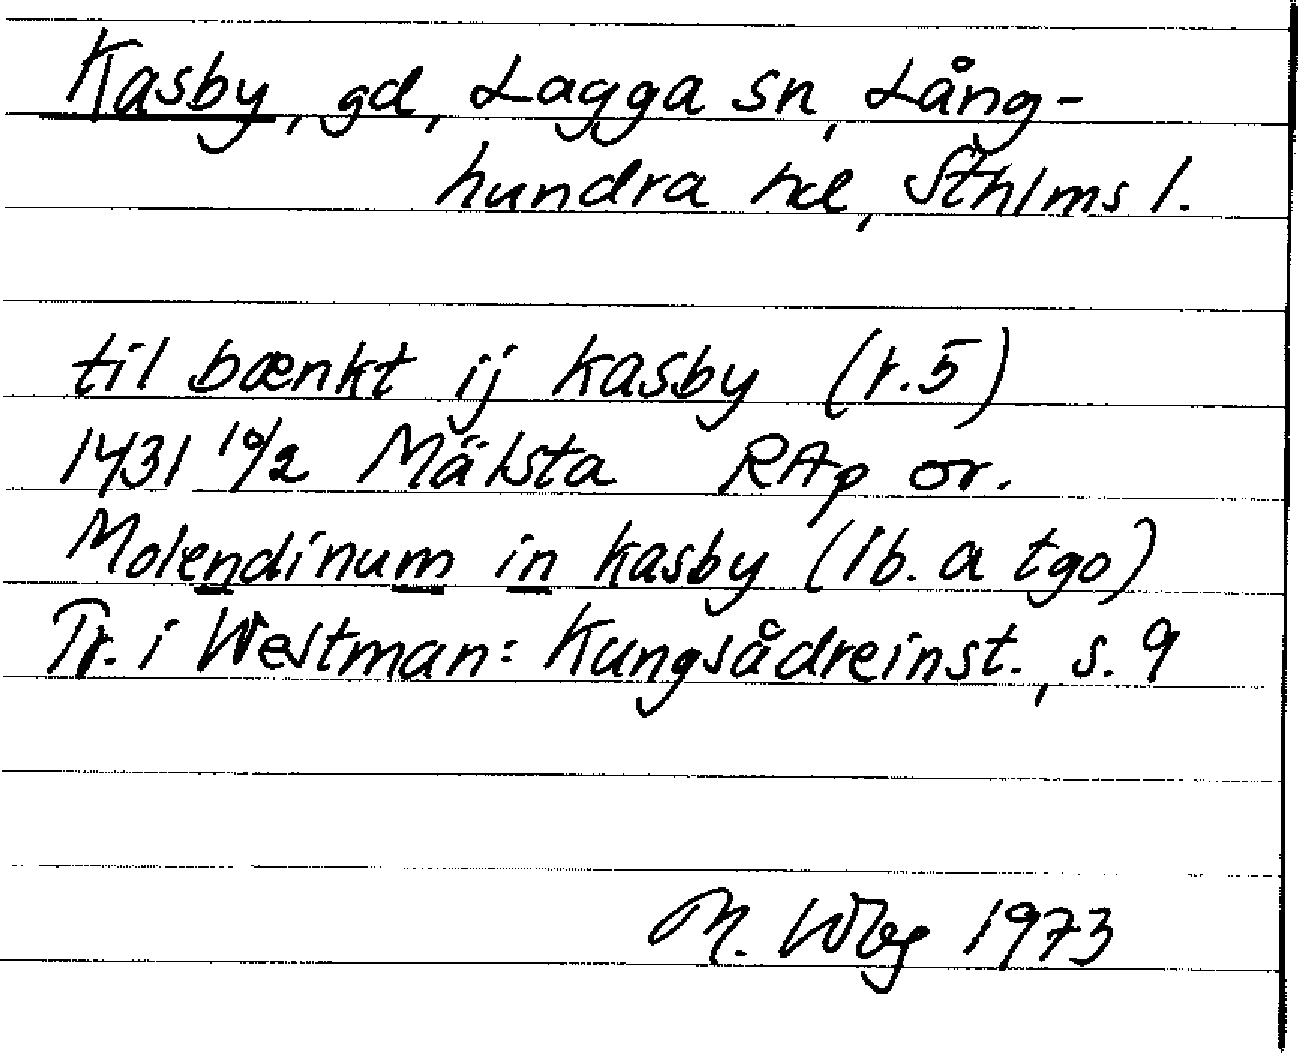 Kasby, gd, Lagga sn, Lång-
hundra hd, Sthlms l.
til bænkt ij kasby (r.5)
1431 10/2 Mälsta RAp or.
Molendinum in kasby (lb. a tgo)
Tr. i Westman: Kungsådreinst., s. 9
M. Wbg 1973